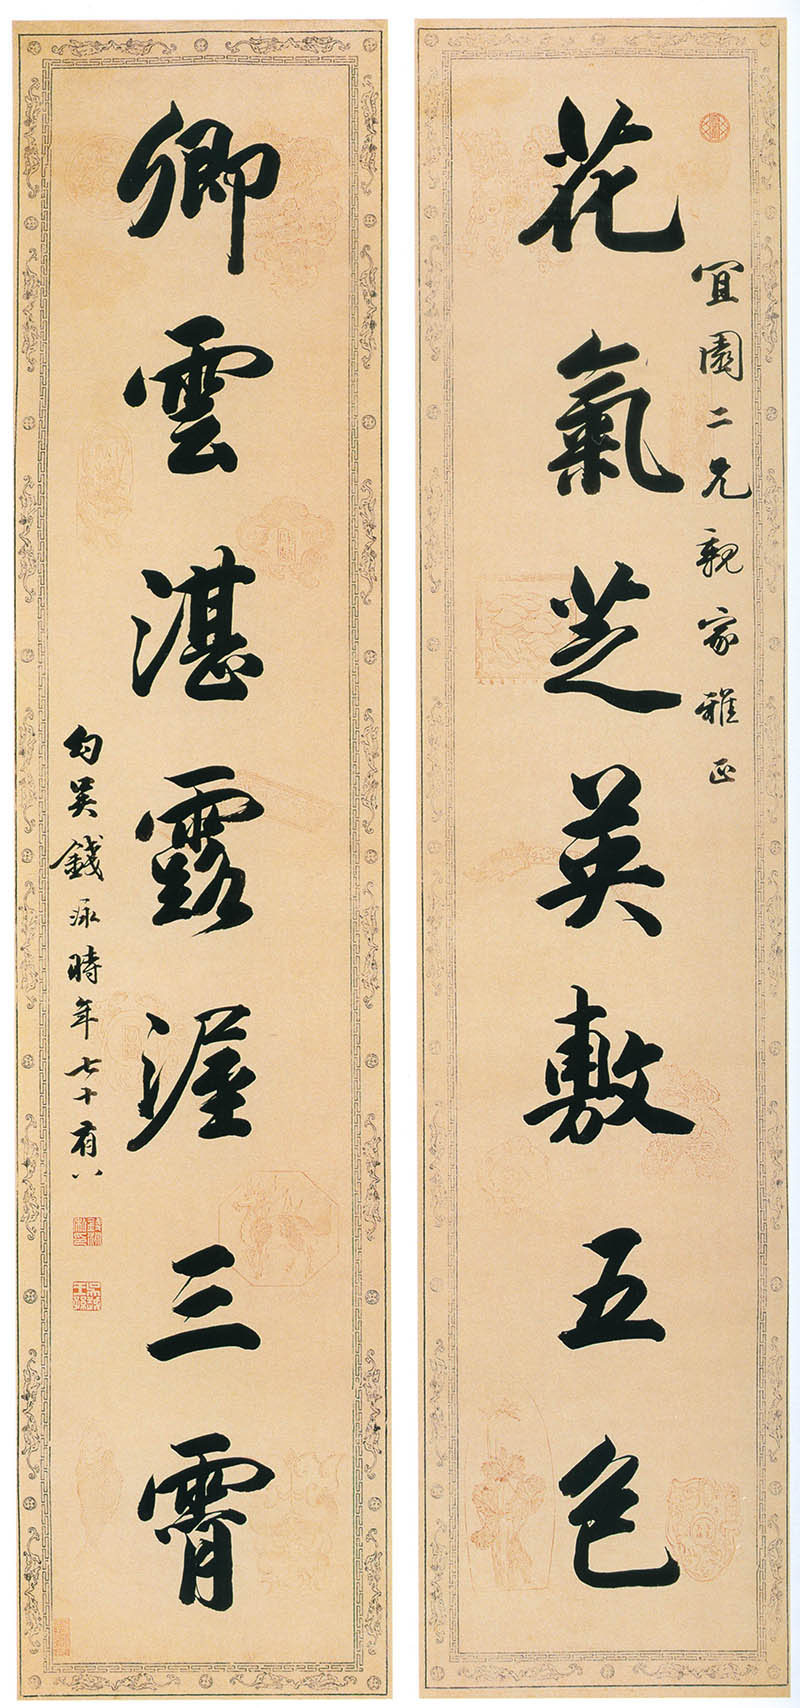 花氣芝英敷五色
宜園二兄親家雅正
卿雲湛露渥三霄
勾吳錢泳時年七十有八